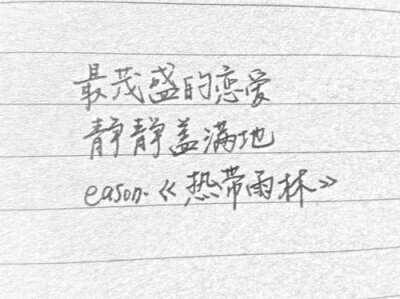 最茂盛的恋爱
静静盖满地
eason.《热带雨林》